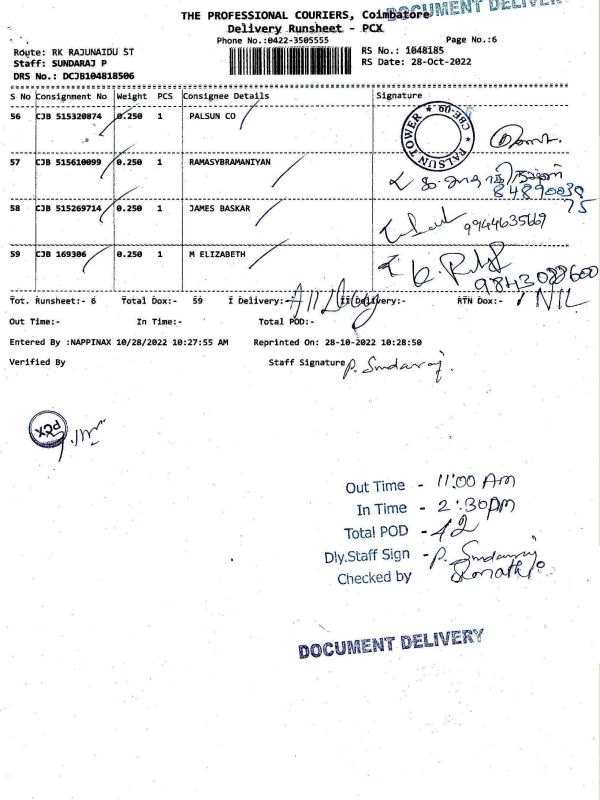 DOCUMENT DELIVERY
THE PROFESSIONAL COURIERS, Coimbatore
Delivery Runsheet - PCX
Phone No.:0422-3505555
Page No.:6
Route: RK RAJUNAIDU ST
RS No.: 1048185
Staff: SUNDARAJ P
RS Date: 28-Oct-2022
DRS No.: DCJB104818506
S No Consignment No Weight PCS Consignee Details Signature
56 CJB 515320874 0.250 1 PALSUN CO
PALSUN TOWER * CBE-09 *
57 CJB 515610099 0.250 1 RAMASYBRAMANIYAN
8489003075
58 CJB 515269714 0.250 1 JAMES BASKAR
9944635669
59 CJB 169306 0.250 1 M ELIZABETH
9843088600
Tot. Runsheet:- 6 Total Dox:- 59 I Delivery:- All II Delivery:- RTN Dox:- NIL
Out Time:- In Time:- Total POD:-
Entered By :NAPPINAX 10/28/2022 10:27:55 AM Reprinted On: 28-10-2022 10:28:50
Verified By Staff Signature P. Sundaraj.
PCX
Out Time - 11:00 Am
In Time - 2:30pm
Total POD - 42
Dly.Staff Sign - P. Sundaraj
Checked by
DOCUMENT DELIVERY